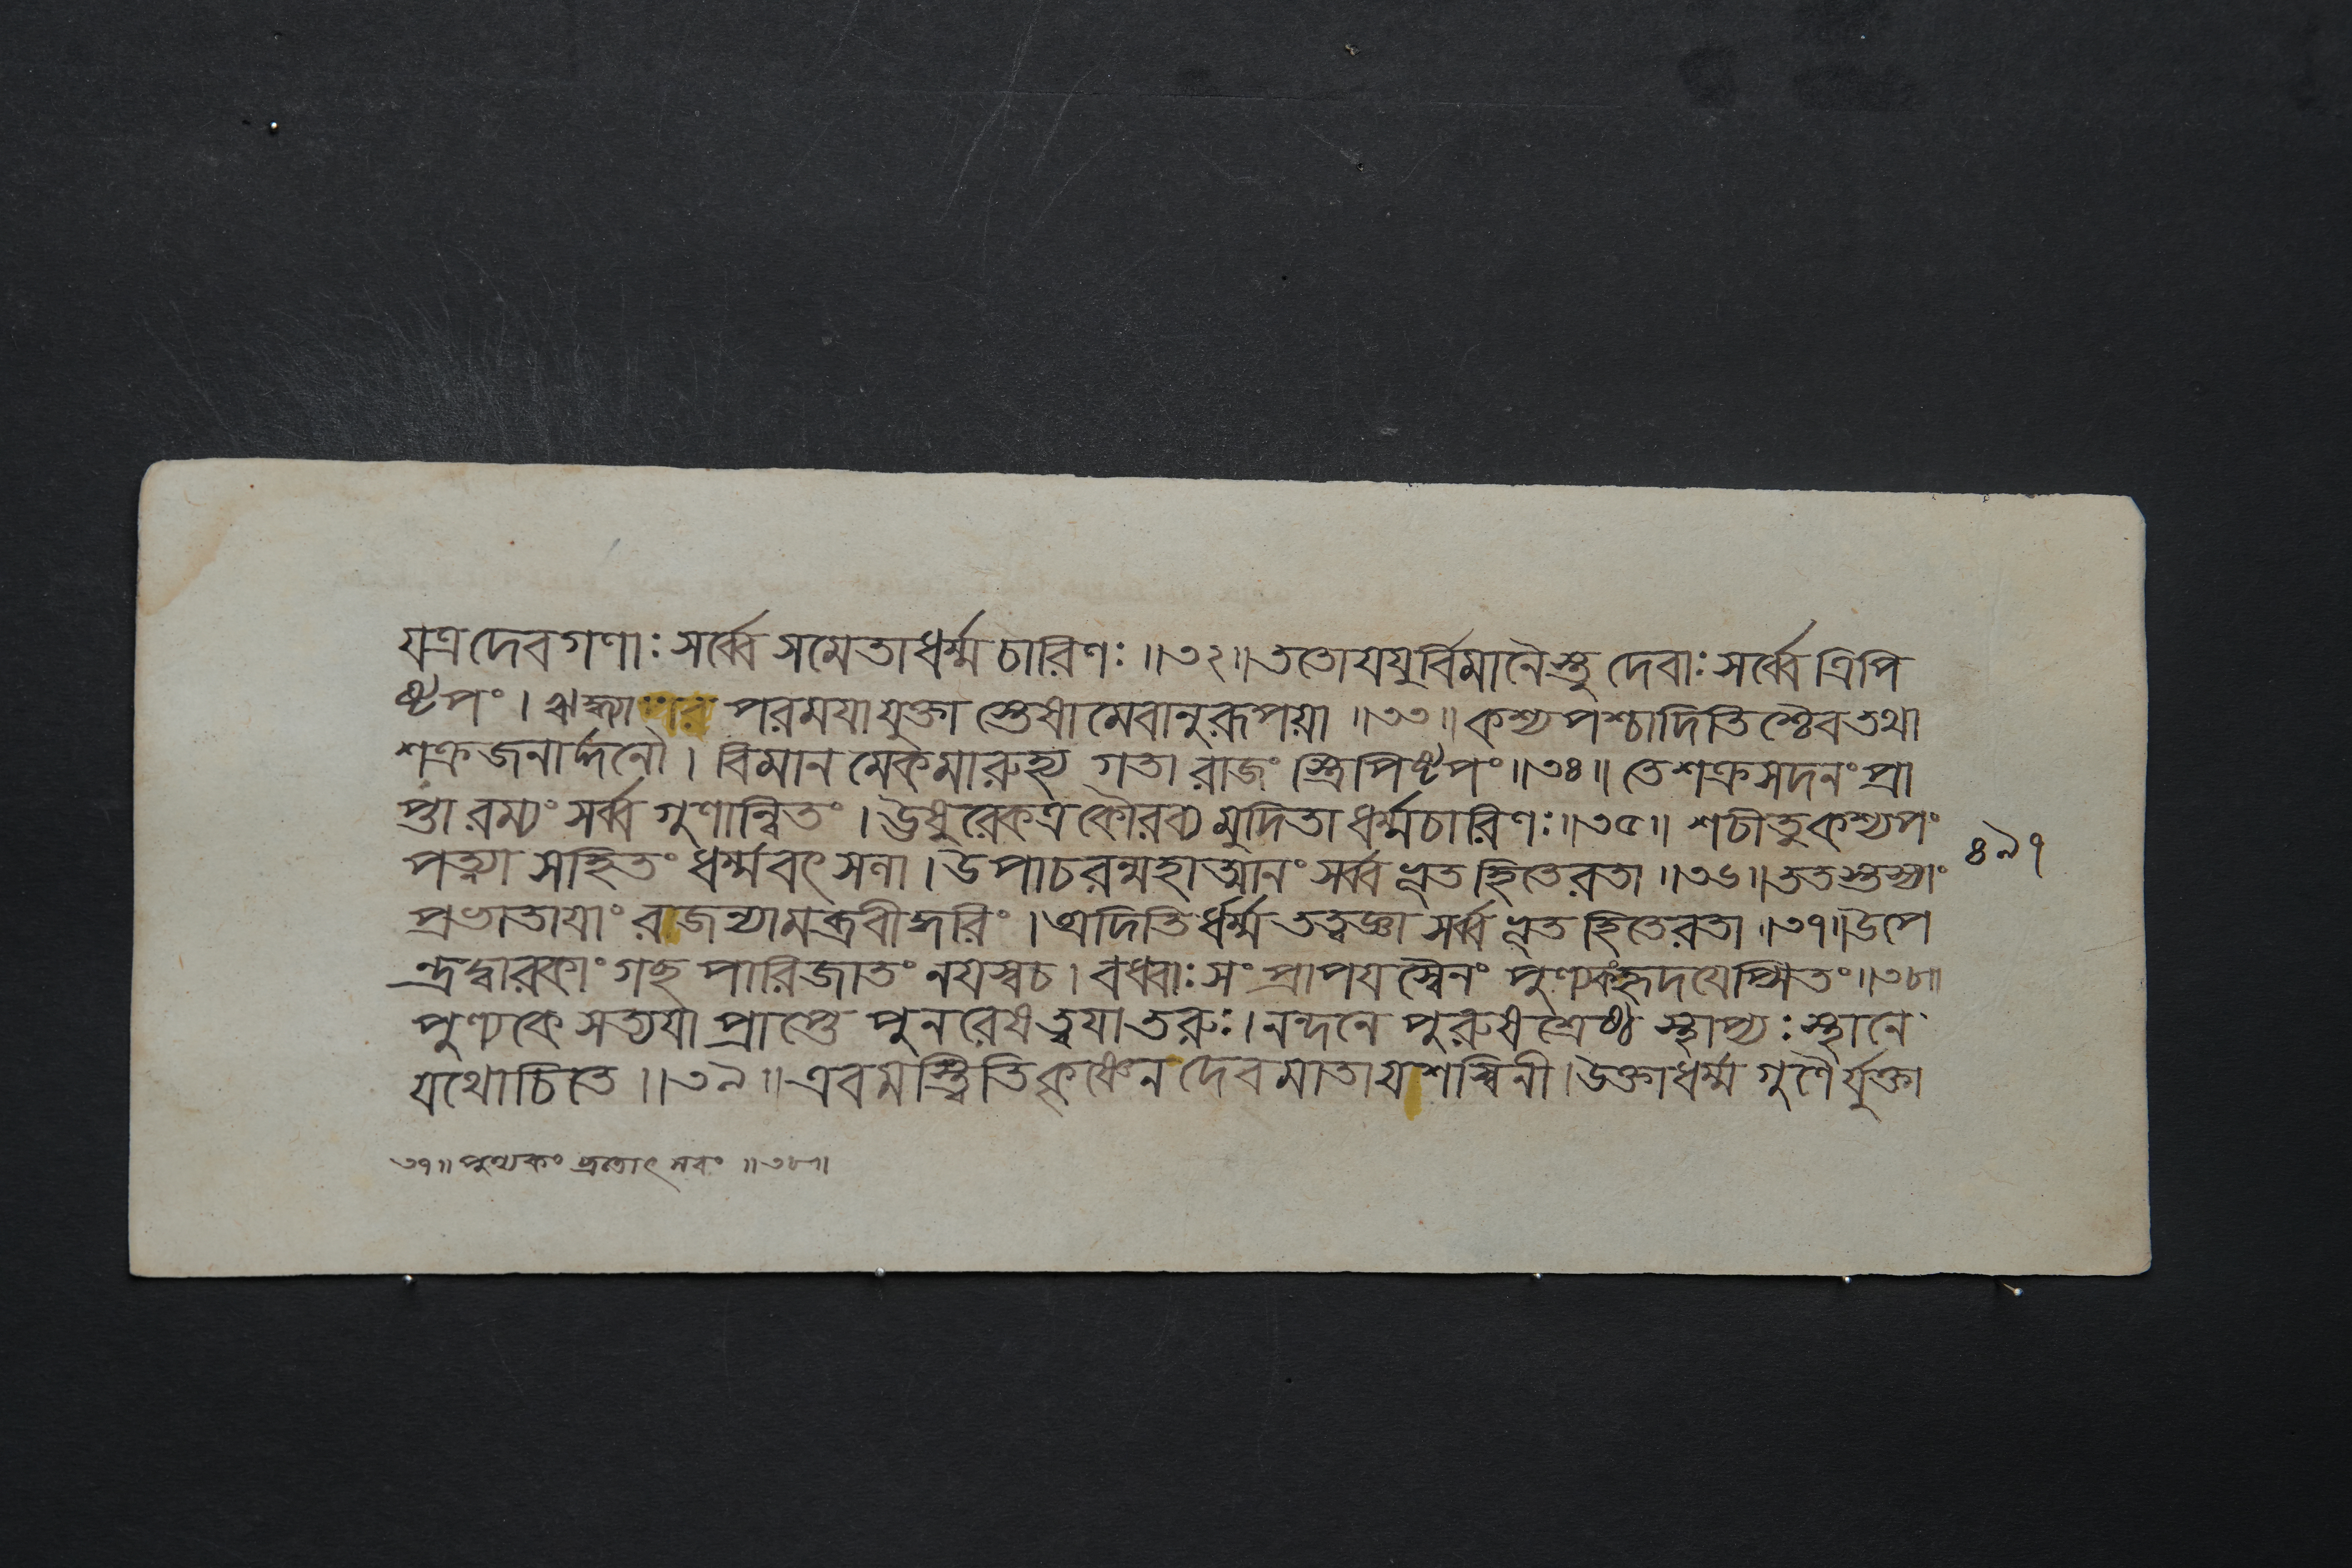 যত্রদেবগণাঃ সর্ব্বে সমেতাধর্ম্মচারিণঃ ॥৩২॥ ততোযযুর্বিমানৈস্তু দেবাঃ সর্ব্বে ত্রিপি
ষ্টপং । ঋদ্ধ্যা পরময়াযুক্তা স্তেষামেবানুরূপয়া ॥৩৩॥ কশ্যপশ্চাদিতিশ্চৈবতথা
শক্রজনার্দ্দনৌ । বিমানমেকমারুহ্য গতা রাজং স্ত্রিপিষ্টপং ॥৩৪॥ তেশক্রসদনং প্রা
প্তা রম্যং সর্ব্ব গুণান্বিতং । ঊষুরেকত্রকৌরব্য মুদিতা ধর্ম্মচারিণঃ ॥৩৫॥ শচীতুকশ্যপং
পত্ন্যা সহিতং ধর্ম্মবৎসলা । উপাচরন্মহাত্মানং সর্ব্বভূত হিতেরতা ॥৩৬॥ ততস্তস্যাং
প্রভাতায়াং রাজন্যামব্রবীদ্ধরিং । অদিতির্ধর্ম্মতত্ত্বজ্ঞা সর্ব্বভূত হিতেরতা ॥৩৭॥ উপে
ন্দ্রদ্বারকাং গছ পারিজাতং নয়স্বচ । বধ্বাঃ সং প্রাপয়স্বৈনং পুণ্যকংহৃদয়েপ্সিতং ॥৩৮॥
পুণ্যকে সত্যয়া প্রাপ্তে পুনরেষত্বয়াতরুঃ । নন্দনে পুরুষশ্রেষ্ঠ স্থাপ্যঃ স্থানে
যথোচিতে ॥৩৯॥ এবমস্ত্বিতিকৃষ্ণেন দেবমাতাযশস্বিনী । উক্তাধর্ম্ম গুণৈর্যুক্তা
৪৯৭
৩৭॥ পুণ্যকং ব্রতোৎসবং ॥৩৮॥